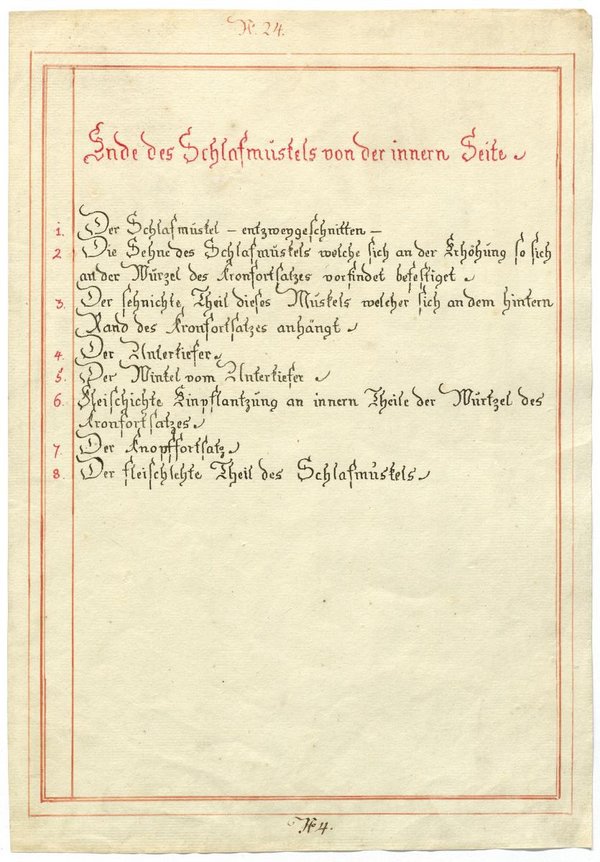 N. 24.
Ende des Schlafmuskels von der innern Seite
1. Der Schlafmuskel – entzweygeschnitten –
2 Die Sehne des Schlafmuskels welche sich an der Erhöhung so sich
an der Würzel des Kronfortsatzes vorfindet befestiget
3. Der sehnichte Theil dieses Muskels welcher sich an dem hintern
Rand des Kronfortsatzes anhängt
4. Der Unterkiefer
5. Der Winkel vom Unterkiefer
6. Fleischichte Einpflantzung an innern Theile der Würtzel des
Kronfortsatzes
7. Der Knopffortsatz
8. Der fleischichte Theil des Schlafmuskels
N 4.